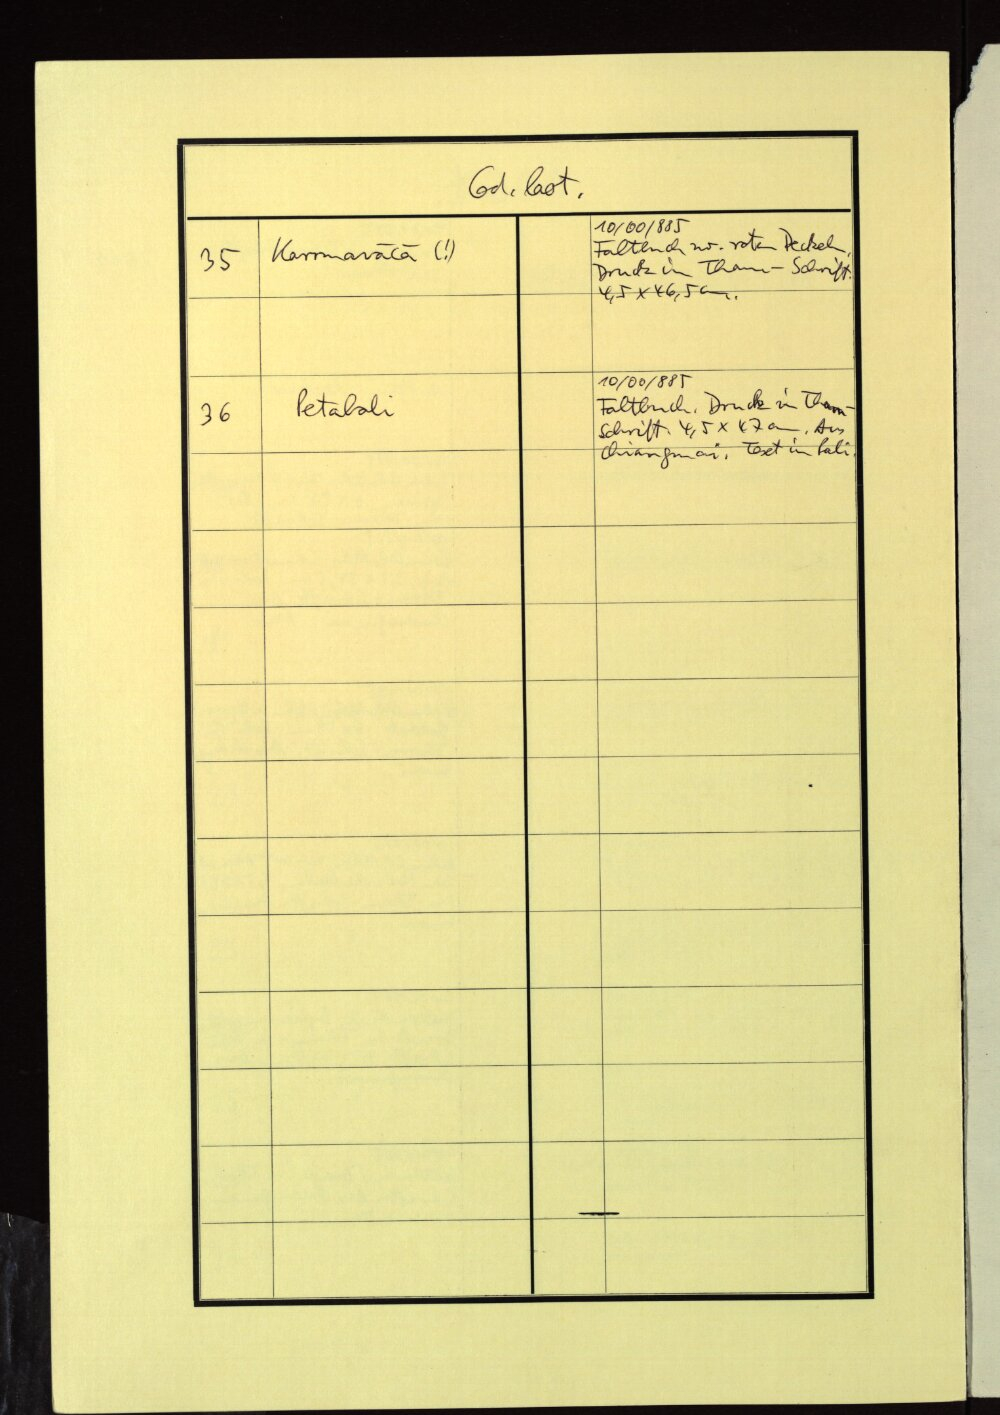 Cod. laot.
35
Kammavācā (!)
10/00/885
Faltbuch m. roten Deckeln.
Druck in Tham-Schrift.
4,5 x 46,5 cm.
36
Petabali
10/00/885
Faltbuch. Druck in Tham-
Schrift. 4,5 x 47 cm. Aus
Chiangmai. Text in Pali.